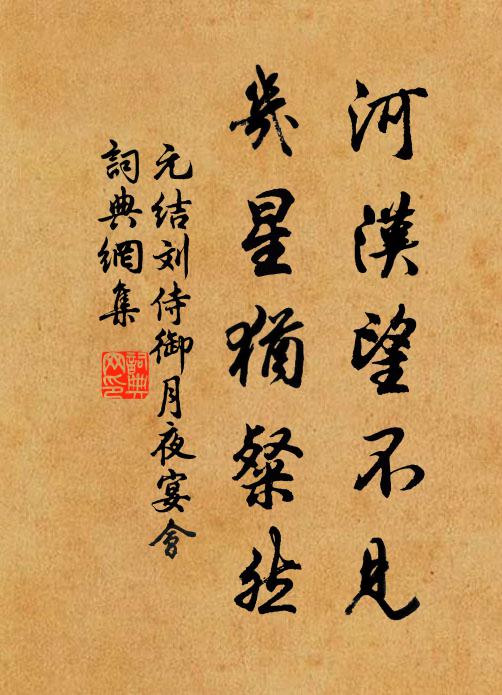 河漢望不見
幾星猶粲然
元结刘侍御月夜宴會
詞典網集
詞典
网印